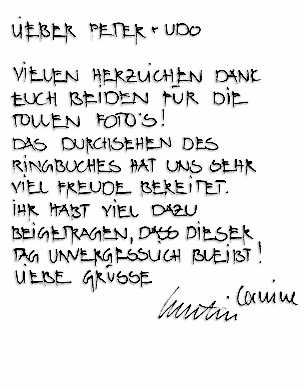 LIEBER PETER + UDO
VIELEN HERZLICHEN DANK
EUCH BEIDEN FÜR DIE
TOLLEN FOTO'S!
DAS DURCHSEHEN DES
RINGBUCHES HAT UNS SEHR
VIEL FREUDE BEREITET.
IHR HABT VIEL DAZU
BEIGETRAGEN, DASS DIESER
TAG UNVERGESSLICH BLEIBT!
LIEBE GRÜSSE